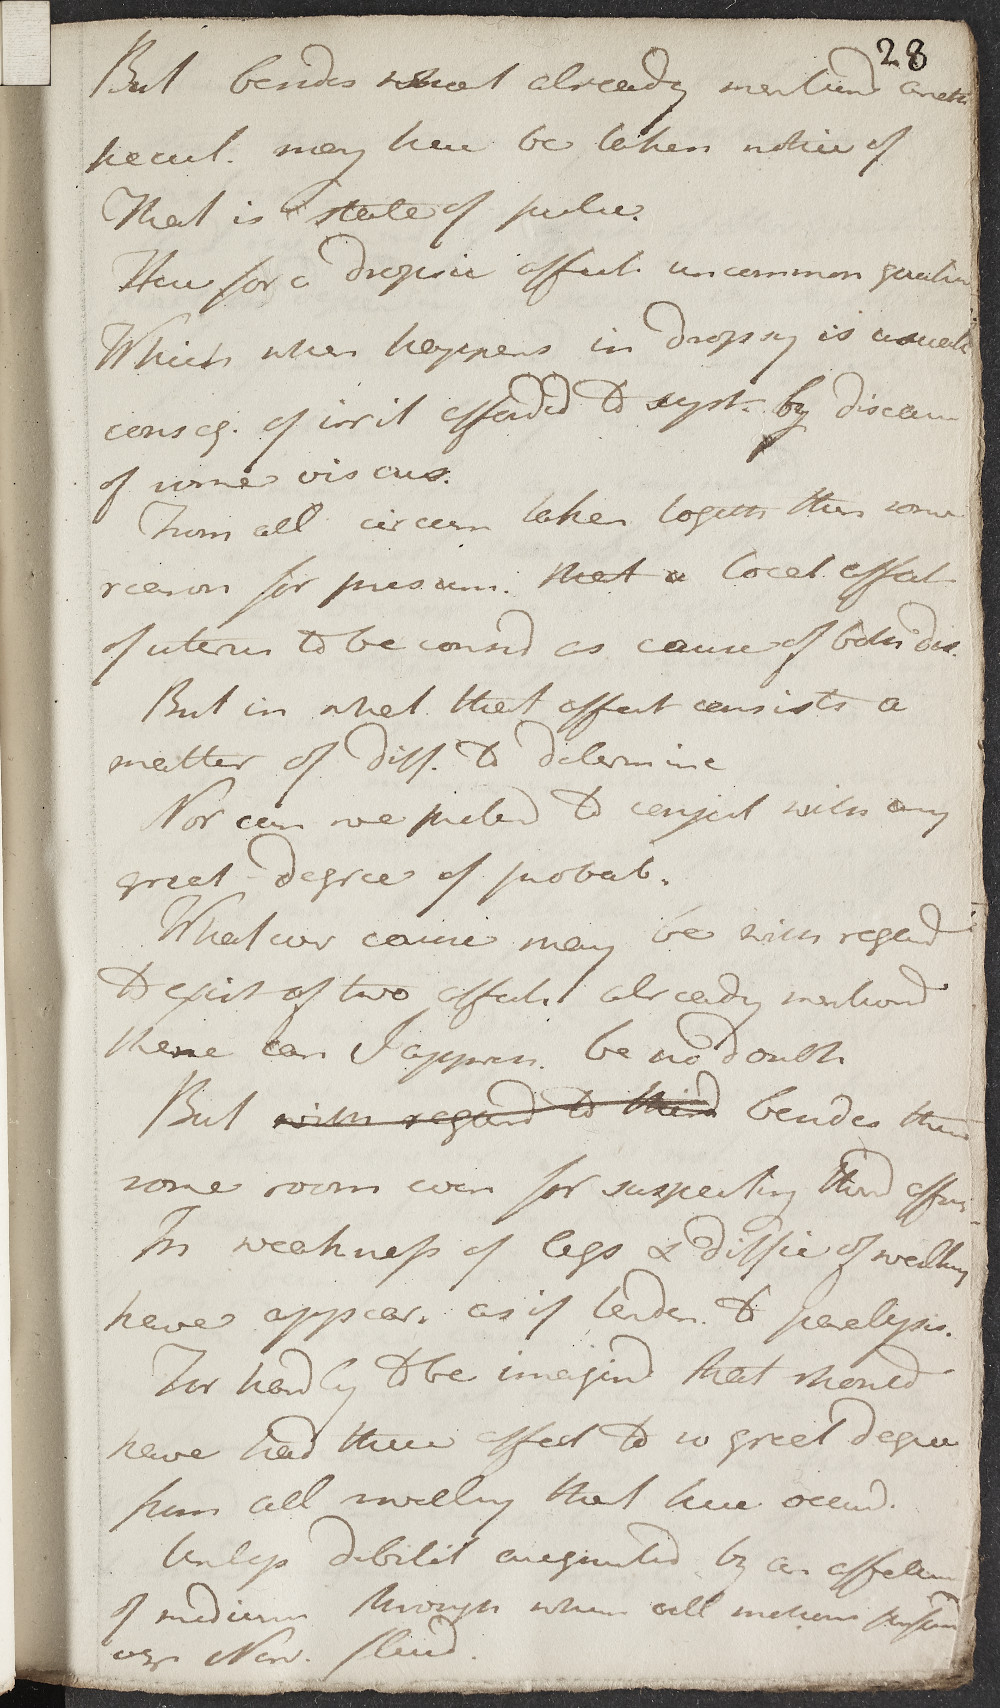 28
But besides what already mentiond anoth
pecul. may here be taken notice of
That is state of pulse.
Here for a dropsic affect. uncommon
Which when happens in dropsy is usuall
conseq. of irrit affordd to syst. by disease
of some viscus.
From all circum taken togeth then some
reason for presum. that a local affect
of uterus to be consd as cause of both dis.
But in what that affect consists a
matter of diff. to determine
Nor can we pretend to conject with any
great degree of probab.
Whatever cause may be with regard
to exist of two affect. already mentiond
there can I apprehen. be no doubt
But with regard to third besides there
some room even for suspecting third affec
In weakness of legs & diffic of walking
have appear. as if tenden. to paralysis.
For hardly to be imagind that should
have had these effect to so great degree
from all swelling that here occurd.
Unless debilit augmented by an affection
of medium through when all motions
viz. Nerv. fluid.